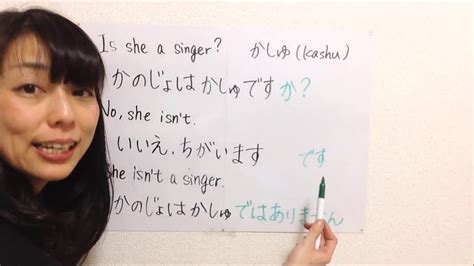 Is she a singer? かしゅ(kashu)
かのじょはかしゅですか?
No, she isn't.
いいえ、ちがいます です
She isn't a singer.
かのじょはかしゅではありません